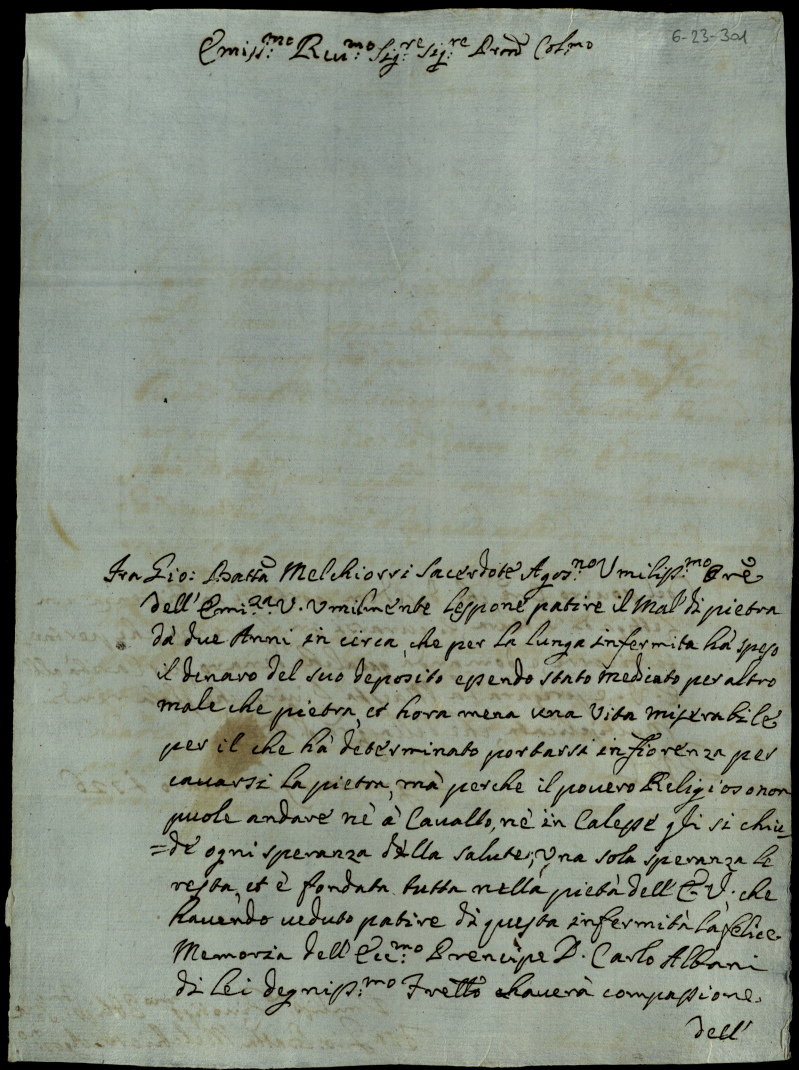 6-23-301
Emiss.mo Rev.mo Sig.re Sig.re Prōn Col.mo
Fra Gio: Battā Melchiorri Sacerdote Agos.no Umiliss.mo Orē
dell'Emi.za V. Umilmente l'espone patire il Mal di pietra
dà due Anni in circa, che per la lunga infermita hà speso
il dinaro del suo deposito essendo stato medicato per altro
male che pietra, et hora mena una Vita miserabile
per il che hà determinato portarsi in fiorenza per
cavarsi la pietra, mà perche il povero Religioso non
puole andare nè à Cavallo, nè in Calesse gli si chiu=
=de ogni speranza della salute; Una sola speranza le
resta, et è fondata tutta nella pietà dell'E. V. che
havendo veduto patire di questa infermità la felice
Memoria dell'Ecc.mo Prencipe D. Carlo Albani
di Lei degniss.mo Frello haverà compassione
dell'